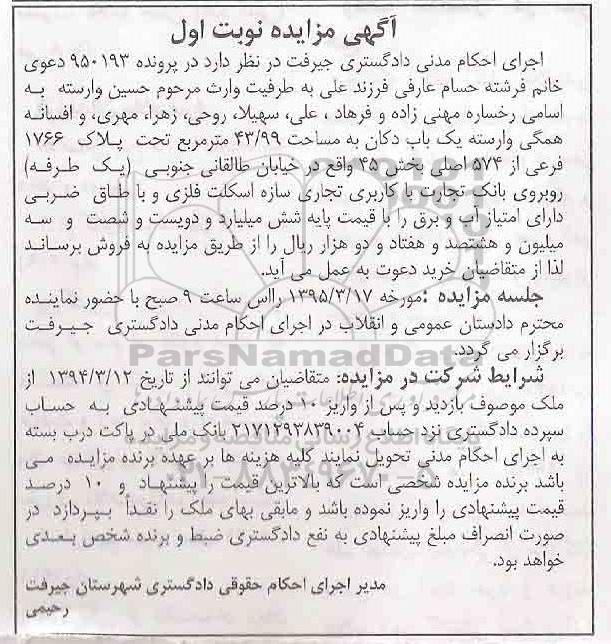 آگهی مزایده نوبت اول
اجرای احکام مدنی دادگستری جیرفت در نظر دارد در پرونده ۹۵۰۱۹۳ دعوی
خانم فرشته حسام عارفی فرزند علی به طرفیت وارث مرحوم حسین وارسته به
اسامی رخساره مهنی زاده و فرهاد ، علی، سهیلا، روحی، زهرا، مهری، و افسانه
همگی وارسته یک باب دکان به مساحت ۴۳/۹۹ مترمربع تحت پلاک ۱۷۶۶
فرعی از ۵۷۴ اصلی بخش ۴۵ واقع در خیابان طالقانی جنوبی (یک طرفه)
روبروی بانک تجارت با کاربری تجاری سازه اسکلت فلزی و با طاق ضربی
دارای امتیاز آب و برق را با قیمت پایه شش میلیارد و دویست و شصت و سه
میلیون و هشتصد و هفتاد و دو هزار ریال را از طریق مزایده به فروش برساند
لذا از متقاضیان خرید دعوت به عمل می آید.
جلسه مزایده :مورخه ۱۳۹۵/۳/۱۷ رااس ساعت ۹ صبح با حضور نماینده
محترم دادستان عمومی و انقلاب در اجرای احکام مدنی دادگستری جیرفت
برگزار می گردد.
ParsNamadData
شرایط شرکت در مزایده: متقاضیان می توانند از تاریخ ۱۳۹۴/۳/۱۲ از
ملک موصوف بازدید و پس از واریز ۱۰ درصد قیمت پیشنهادی به حساب
سپرده دادگستری نزد حساب ۲۱۷۱۲۹۳۸۳۹۰۰۴ بانک ملی در پاکت درب بسته
به اجرای احکام مدنی تحویل نمایند کلیه هزینه ها بر عهده برنده مزایده می
باشد برنده مزایده شخصی است که بالاترین قیمت را پیشنهاد و ۱۰ درصد
قیمت پیشنهادی را واریز نموده باشد و مابقی بهای ملک را نقداً بپردازد در
صورت انصراف مبلغ پیشنهادی به نفع دادگستری ضبط و برنده شخص بعدی
خواهد بود.
مدیر اجرای احکام حقوقی دادگستری شهرستان جیرفت
رحیمی